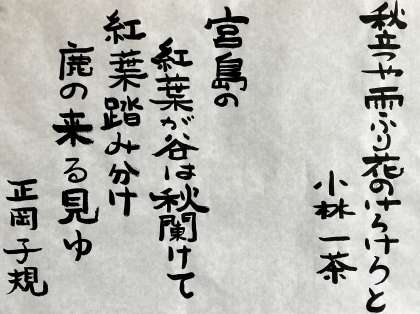 秋立つや雨ふり花のけろけろと
小林一茶
宮島の
紅葉が谷は秋闌けて
紅葉踏み分け
鹿の来る見ゆ
正岡子規